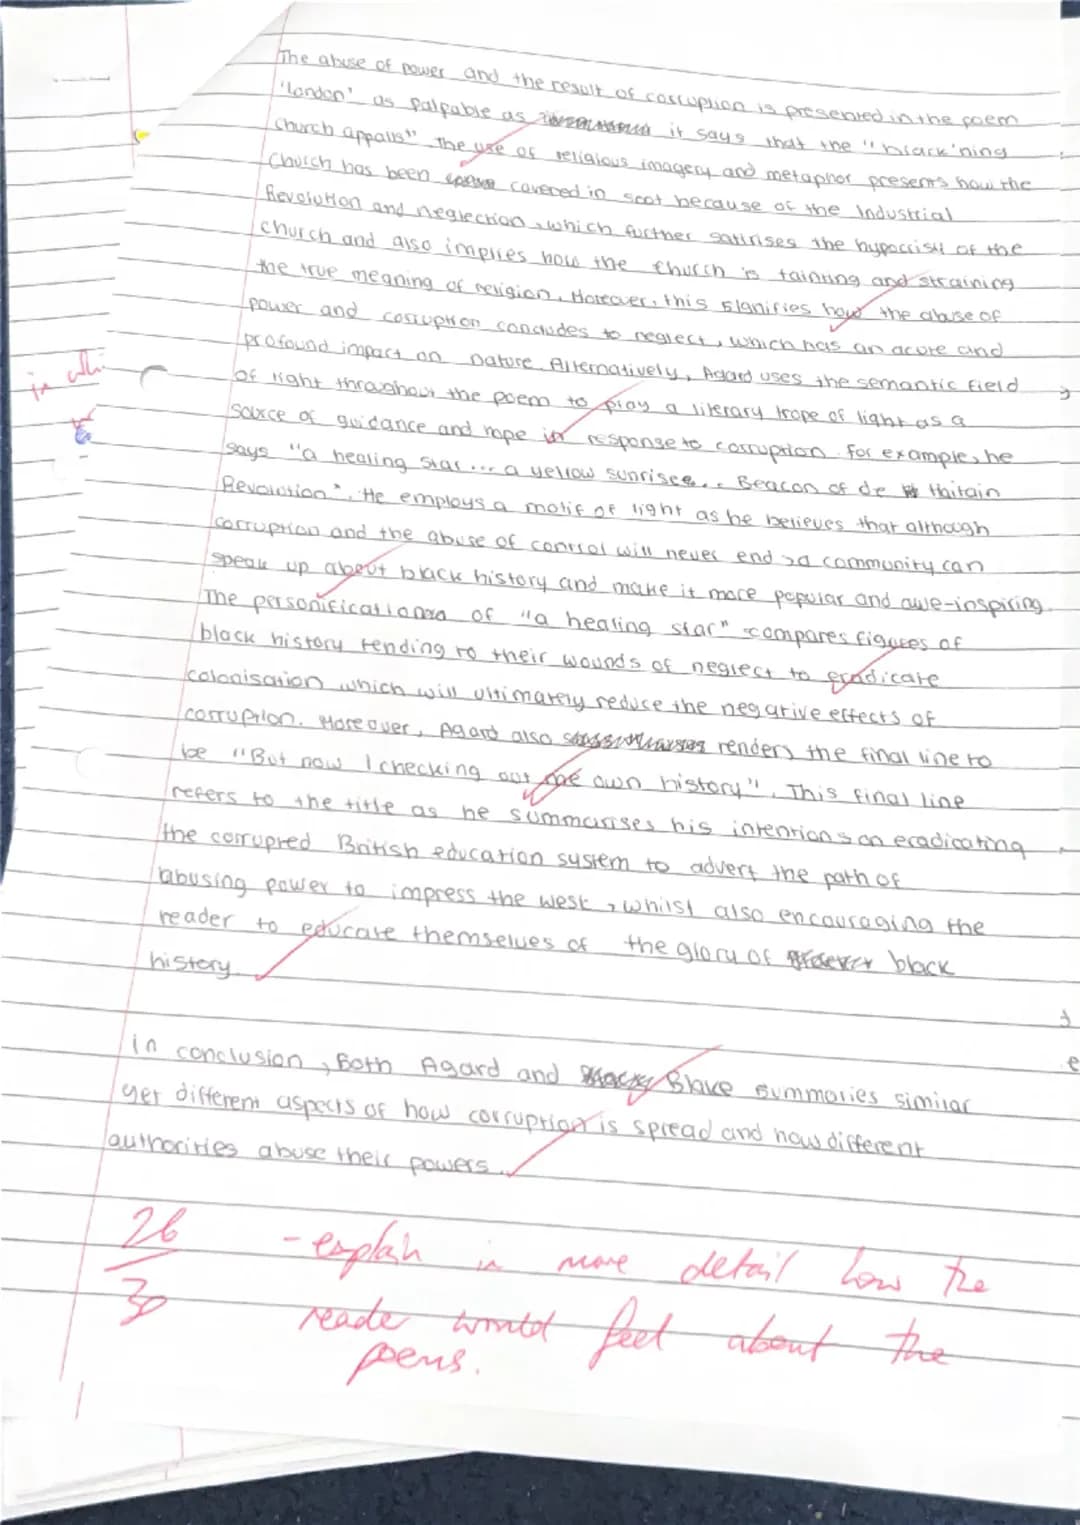 The abuse of power and the result of corruption is presented in the poem
'London' as palpable as it says that the "black'ning
church appalls" the use of religious imagery and metaphor presents how the
Church has been covered in soot because of the Industrial
Revolution and neglection, which further satirises the hypocrisy of the
church and also implies how the church is tainting and straining
the true meaning of religion. Moreover, this signifies how the abuse of
power and corruption concludes to neglect, which has an acute and
profound impact on nature. Alternatively, Agard uses the semantic field
of light throughout the poem to play a literary trope of light as a
source of guidance and hope in response to corruption. For example, he
says "a healing star... a yellow sunrise... Beacon of de Haitain
Revolution". He employs a motif of light as he believes that although
corruption and the abuse of control will never end, a community can
speak up about black history and make it more popular and awe-inspiring.
The personification of "a healing star" compares figures of
black history tending to their wounds of neglect to eradicate
colonisation which will ultimately reduce the negative effects of
corruption. Moreover, Agard also renders the final line to
be "But now I checking out me own history". This final line
refers to the title as he summarises his intentions on eradicating
the corrupted British education system to advert the path of
abusing power to impress the west, whilst also encouraging the
reader to educate themselves of the glory of black
history
in conclusion, Both Agard and Blake summaries similar
yet different aspects of how corruption is spread and how different
authorities abuse their powers.
26
30
- explain in more detail how the
reader would feel about the
poems.